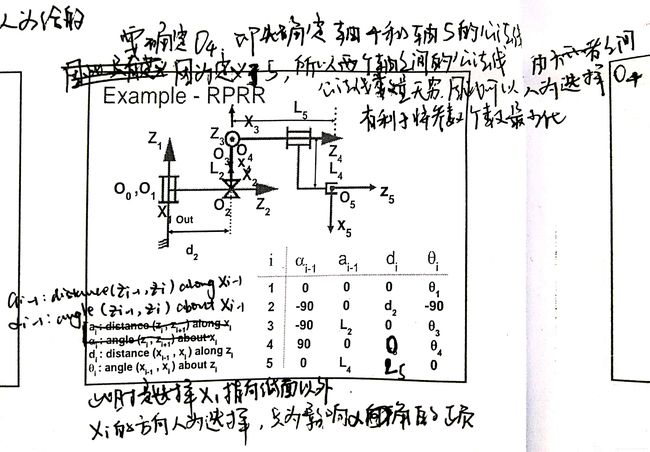 人为给的
要确定O4, 即先确定轴4和轴5的公法线
因为定义了5, 所以两个轴之间的公法线
公法线有无数, 因此可以人为选择
有利于将参数个数最小化
Example - RPRR
L5
X3
Z3
O3
O4
X4
Z4
L4
Z1
L2
X2
O0, O1
O2
Z2
O5
Z5
X1 Out
X5
d2
i αi-1 ai-1 di θi
1 0 0 0 θ1
2 -90 0 d2 -90
3 -90 L2 0 θ3
4 90 0 0 θ4
5 0 L4 L5 0
ai-1: distance(zi-1, zi) along xi-1
αi-1: angle(zi-1, zi) about xi-1
ai : distance (zi, zi+1) along xi
αi : angle (zi, zi+1) about xi
di : distance (xi-1, xi) along zi
θi : angle (xi-1, xi) about zi
此时选择X1指向纸面以外
Xi的方向人为选择, 只为影响
O4